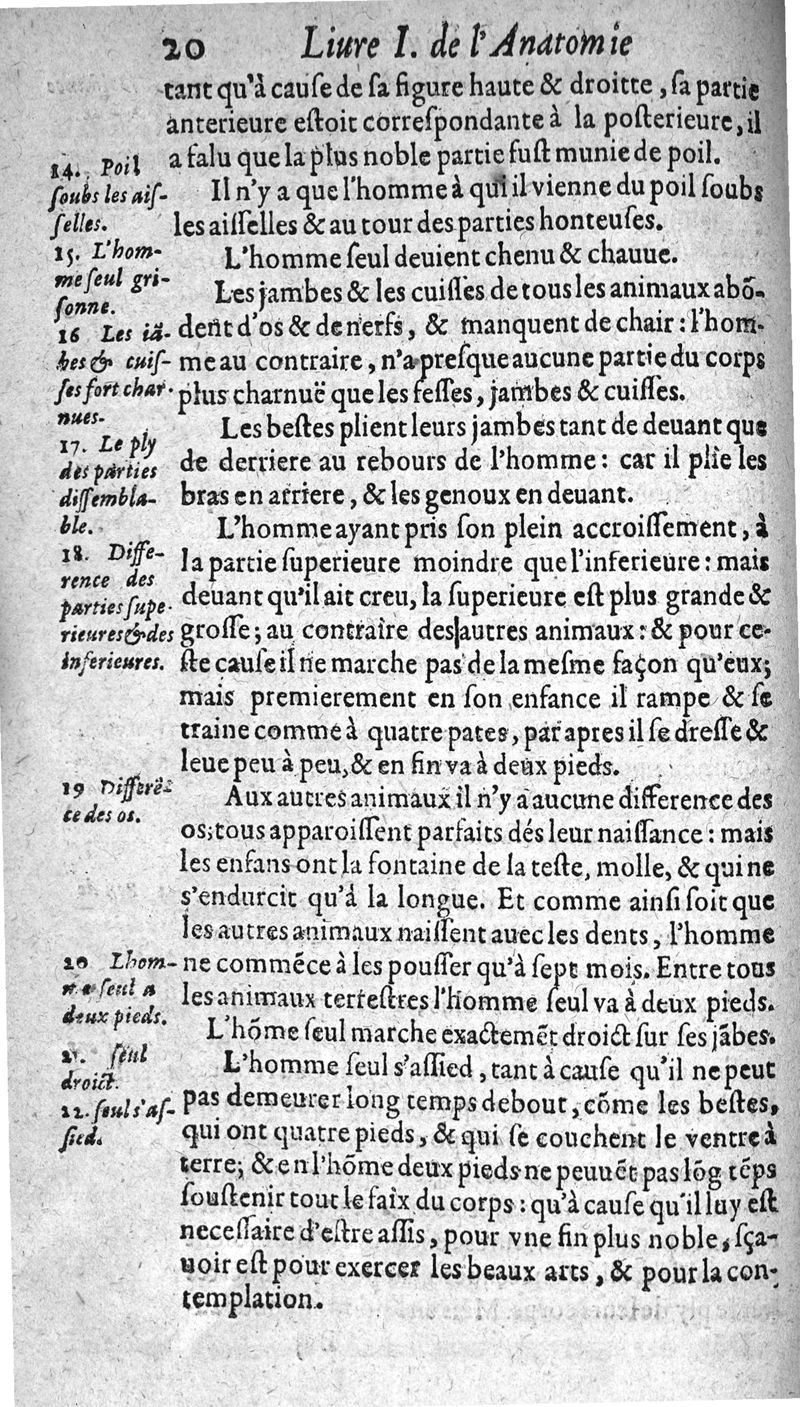 20 Liure I. de l'Anatomie
tant qu'à cauſe de ſa figure haute & droitte, ſa partie
anterieure eſtoit correſpondante à la poſterieure, il
a falu que la plus noble partie fuſt munie de poil.
14. Poil
ſoubs les aiſ-
ſelles.
Il n'y a que l'homme à qui il vienne du poil ſoubs
les aiſſelles & au tour des parties honteuſes.
15. L'hom-
me ſeul gri-
ſonne.
L'homme ſeul deuient chenu & chauue.
16 Les iã-
bes & cuiſ-
ſes fort char-
nues.
Les jambes & les cuiſſes de tous les animaux abõ-
dent d'os & de nerfs, & manquent de chair : l'hom-
me au contraire, n'a preſque aucune partie du corps
plus charnuë que les feſſes, jambes & cuiſſes.
17. Le ply
des parties
diſſembla-
ble.
Les beſtes plient leurs jambes tant de deuant que
de derriere au rebours de l'homme : car il plie les
bras en arriere, & les genoux en deuant.
18. Diffe-
rence des
parties ſupe-
rieures & des
inferieures.
L'homme ayant pris ſon plein accroiſſement, à
la partie ſuperieure moindre que l'inferieure : mais
deuant qu'il ait creu, la ſuperieure eſt plus grande &
groſſe ; au contraire des autres animaux : & pour ce-
ſte cauſe il ne marche pas de la meſme façon qu'eux;
mais premierement en ſon enfance il rampe & ſe
traine comme à quatre pates, par apres il ſe dreſſe &
leue peu à peu, & en fin va à deux pieds.
19 Differẽ-
ce des os.
Aux autres animaux il n'y a aucune difference des
os; tous apparoiſſent parfaits dés leur naiſſance : mais
les enfans ont la fontaine de la teſte, molle, & qui ne
s'endurcit qu'à la longue. Et comme ainſi ſoit que
les autres animaux naiſſent auec les dents, l'homme
ne commẽce à les pouſſer qu'à ſept mois. Entre tous
les animaux terreſtres l'homme ſeul va à deux pieds.
20 Lhom-
me ſeul a
deux pieds.
L'hõme ſeul marche exactemẽt droict ſur ſes jãbes.
21. ſeul
droict.
22. ſeul s'aſ-
ſied.
L'homme ſeul s'aſſied, tant à cauſe qu'il ne peut
pas demeurer long temps debout, cõme les beſtes,
qui ont quatre pieds, & qui ſe couchent le ventre à
terre; & en l'hõme deux pieds ne peuuẽt pas lõg tẽps
ſouſtenir tout le faix du corps : qu'à cauſe qu'il luy eſt
neceſſaire d'eſtre aſſis, pour vne fin plus noble, ſça-
uoir eſt pour exercer les beaux arts, & pour la con-
templation.